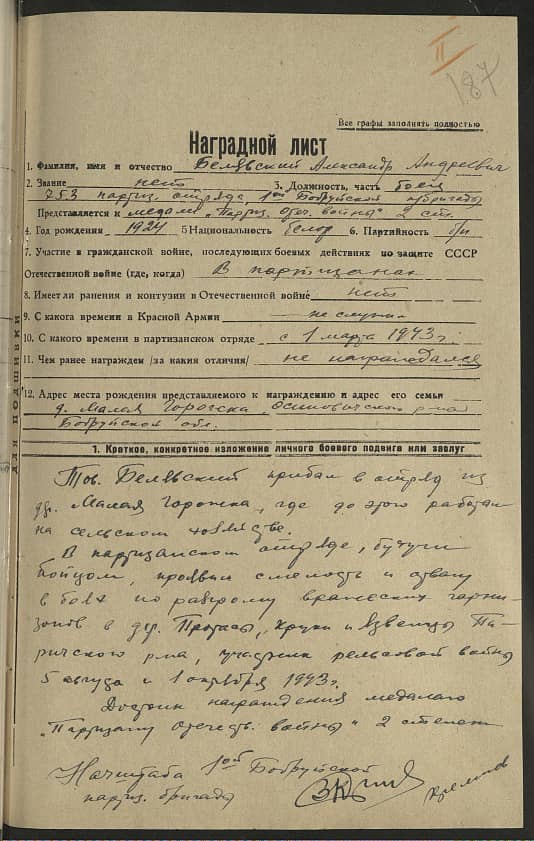 II
187
Все графы заполнять полностью
Наградной лист
1. Фамилия, имя и отчество Белявский Александр Андреевич
2. Звание нет 3. Должность, часть боец
253 партиз. отряда, 1ой Бобруйской п/бригады
Представляется к медали "Партиз. отеч. войны" 2 ст.
4. Год рождения 1924 5 Национальность белор 6. Партийность б/п
7. Участие в гражданской войне, последующих боевых действиях по защите СССР
Отечественной войне (где, когда) В партизанах
8. Имеет ли ранения и контузии в Отечественной войне нет
9. С какога времени в Красной Армии не служил
10. С какого времени в партизанском отряде с 1 марта 1943 г.
11. Чем ранее награжден /за какия отличия/ не награждался
12. Адрес места рождения представляемого к награждению и адрес его семьи
д. Малая Горожка, Осиповичского р-на
Бобруйской обл.
1. Краткое, конкретное изложение личного боевого подвига или заслуг
Тов. Белявский прибыл в отряд из
д. Малая Горожка, где до этого работал
на сельском хозяйстве.
В партизанском отряде, будучи
бойцом, проявил смелость и отвагу
в боях по разгрому вражеских гарни-
зонов в д.д. Протасы, Круки и Язвенцы Па-
ричского р-на, участник рельсовой войны
5 августа и 1 октября 1943 г.
Достоин награждения медалью
"Партизану отечеств. войны" 2 степени
Начштаба 1ой Бобруйской
партиз. бригады
для подшивки